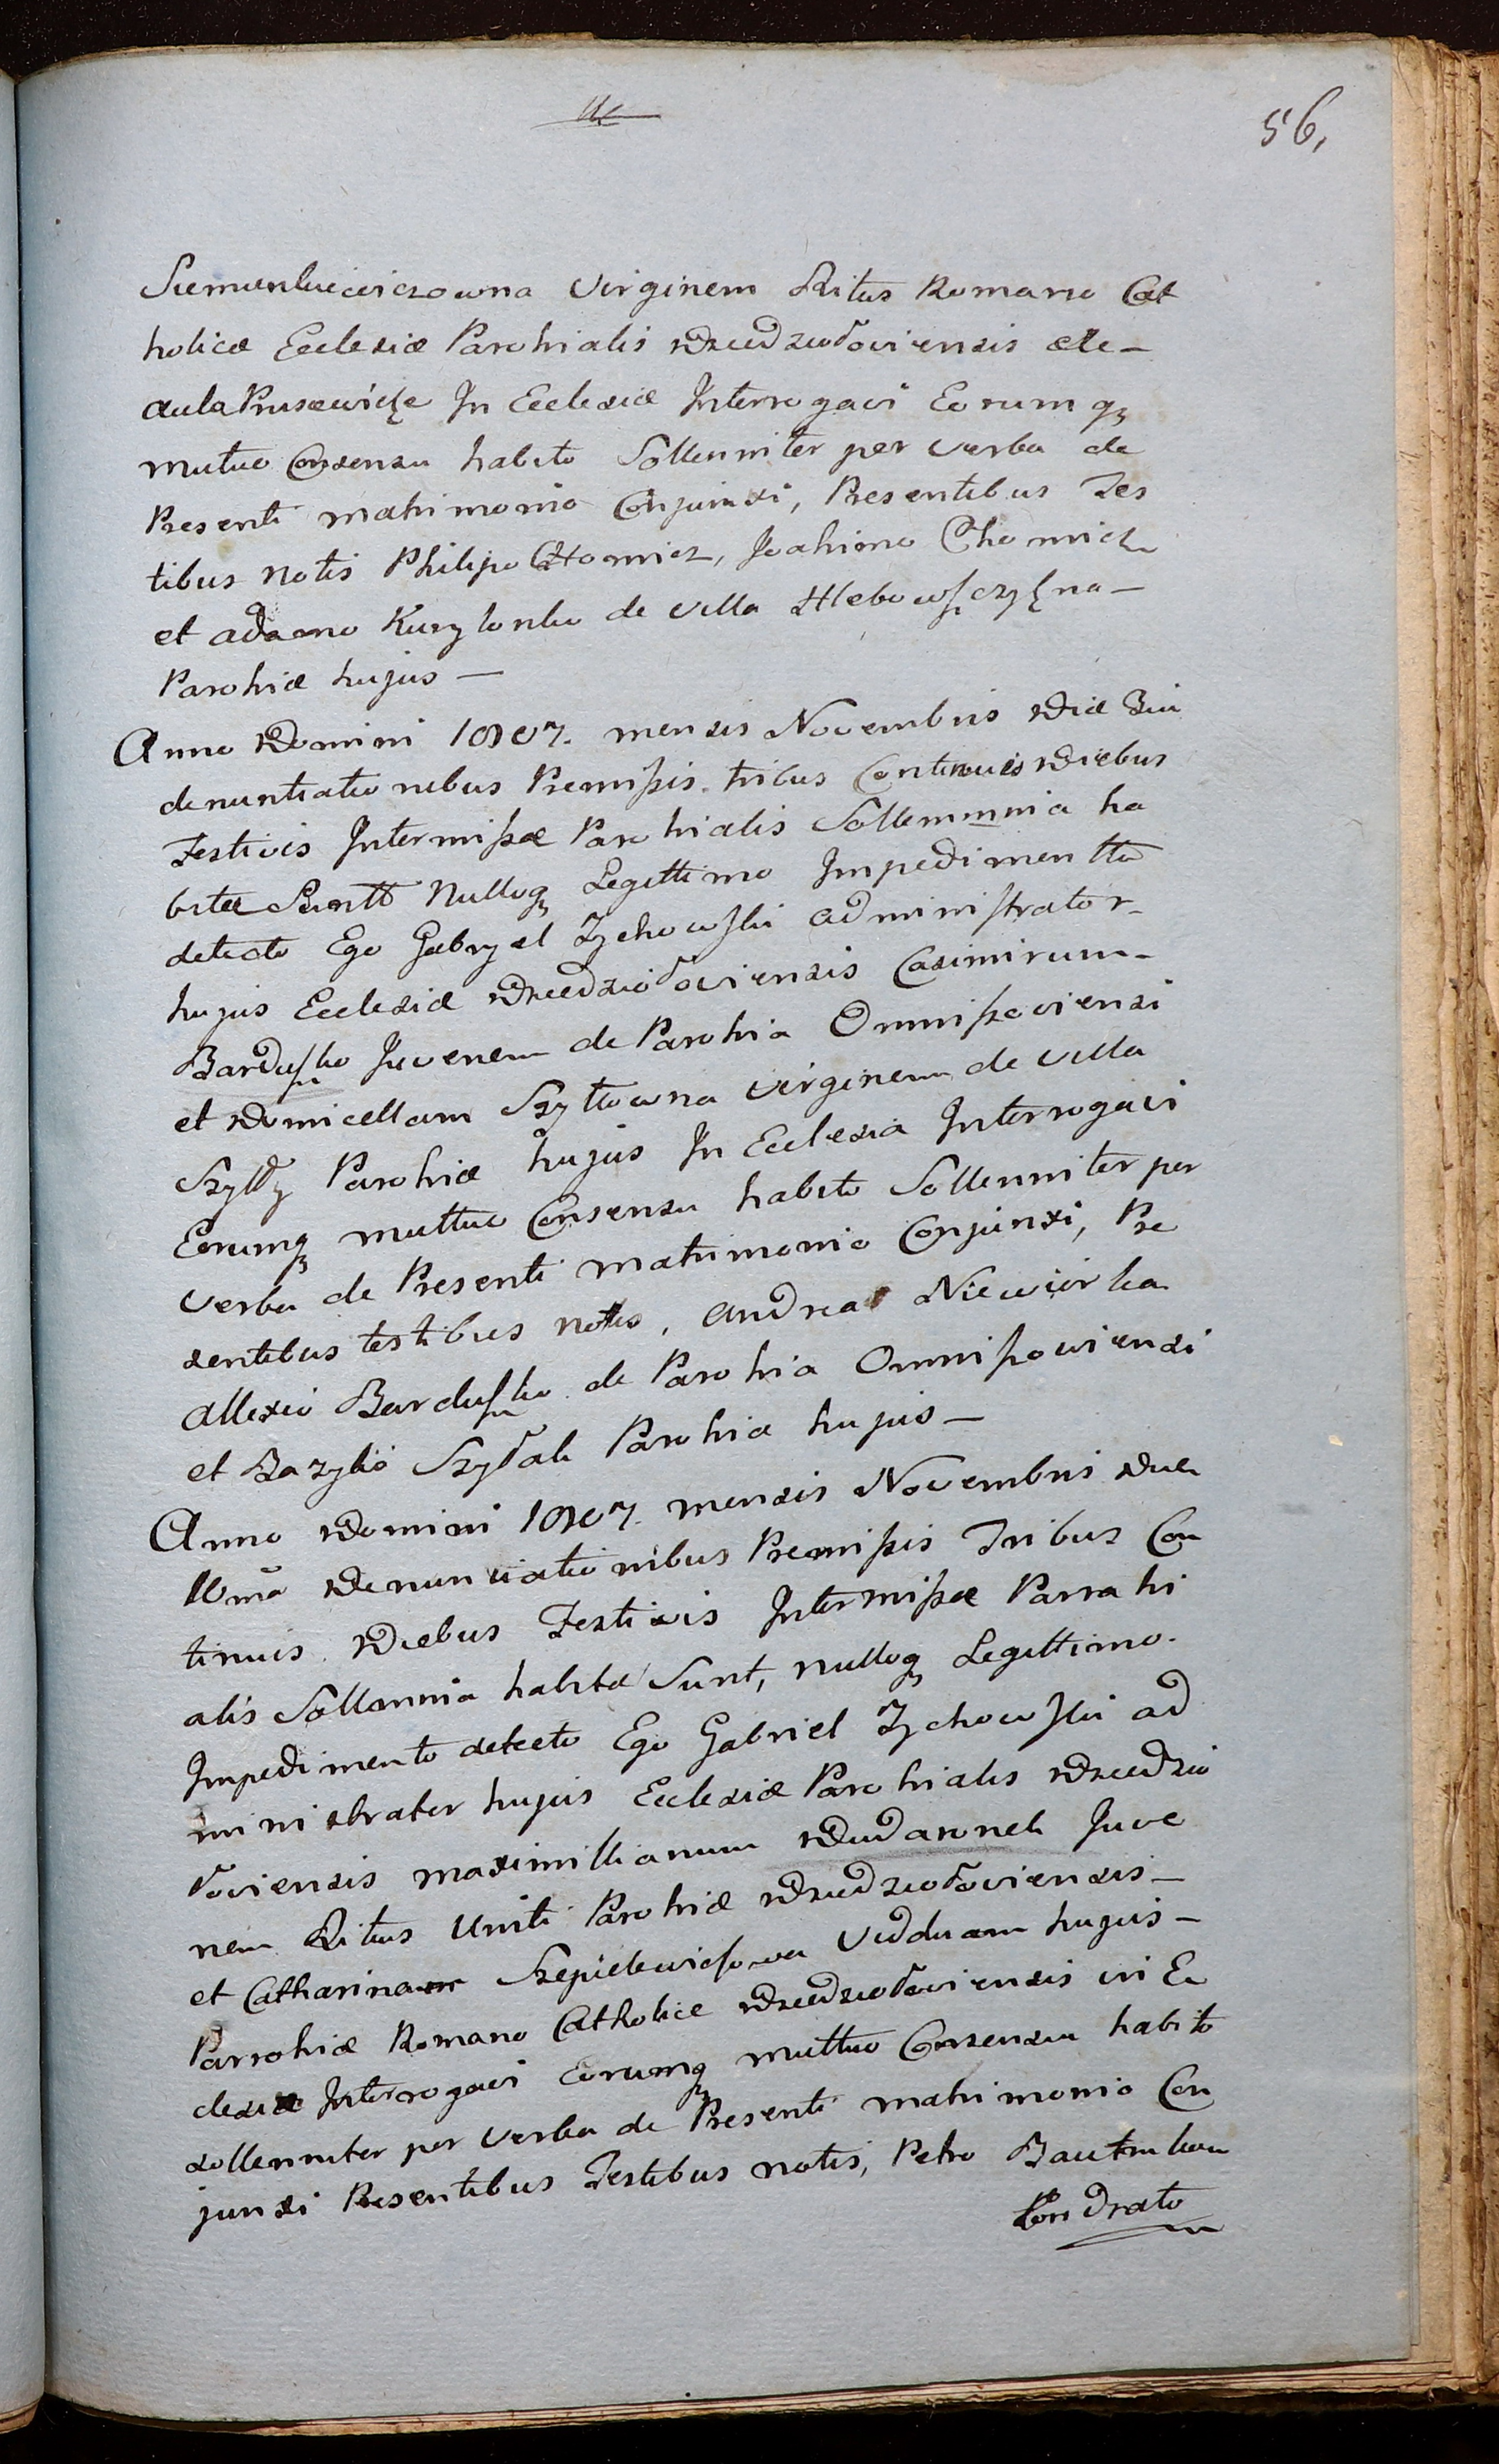 56,
Siemienkiewiczowna Virginem Ritus Romano Cat
holicæ Ecclesiæ Parohialis Dziedziłoviensis de –
aula Prusewicze In Ecclesiæ Interrogavi Eorumq3
mutuo Consensu habito Sollenniter per verba de
Presenti matrimonio Conjunxi, Presentibus Tes
tibus notis Philipo Chomicz, Joahimo Chomicz
et adamo Kurylonko de villa Hlebowszczyzna –
Parohiæ hujus –
Anno Domini 1807. mensis Novembris Diæ 3ia
denuntiationibus Premißis tribus Continuis Diebus
Festivis Intermißæ Parohialis Sollemnnia ha
bitæ Suntt Nulloq3 Legittimo Impedimentto
detecto Ego Gabryel Zychowski administrator
hujus Ecclesiæ Dziedziłoviensis Casimirum –
Bardusko Juvenem de Parohia Omnißoviensi
et Domicellam Szyttowna virginem de villa
Szytty Parohiæ hujus In Ecclesia Interrogavi
Eorumq3 muttuo Consensu habito Sollenniter per
verba de Presenti matrimonio Conjunxi, Pre
sentibus testibus notis, andrea Niewiorka
allexio Bardusko de Parohia Omnißoviensi
et Bazylio Szytak Parohiæ hujus –
Anno Domini 1807. mensis Novembris Die
10ma Denunciationibus Premißis Tribus Con
tinuis Diebus Festivis Intermißæ Parrohi
alis Sollemnia habitæ Sunt, nulloq3 Legittimo
Impedimento detecto Ego Gabriel Zychowski ad
ministrator hujus Ecclesiæ Parohialis Dziedzio
łoviensis maximillianum Dudaronek Juve
nem Ritus Uniti Parohiæ Dziedziołoviensis –
et Catharinam Szepielewiczowa Vidduam hujus –
Parrohiæ Romano Catholicæ Dziedziołoviensis in Ec
clesiæ Interrogavi Eorumq3 muttuo Consensu habito
sollenniter per verba de Presenti matrimonio Con
junxi Presentibus Testibus notis, Petro Bautruken
Kondrato